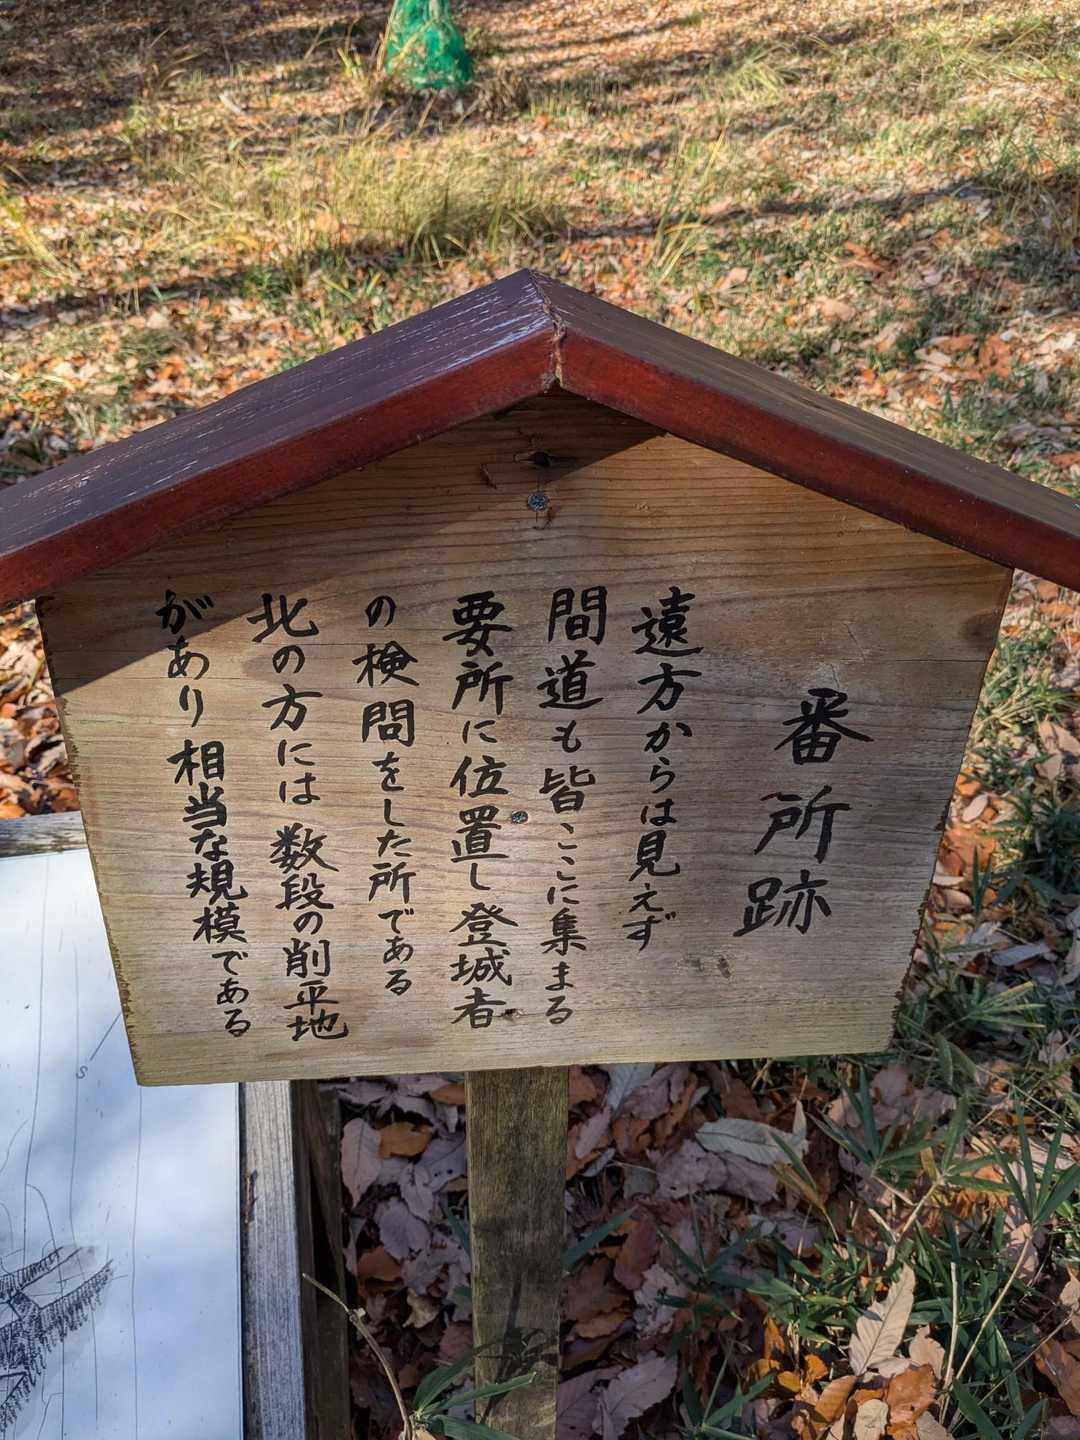 番所跡
遠方からは見えず
間道も皆ここに集まる
要所に位置し登城者
の検問をした所である
北の方には数段の削平地
があり相当な規模である